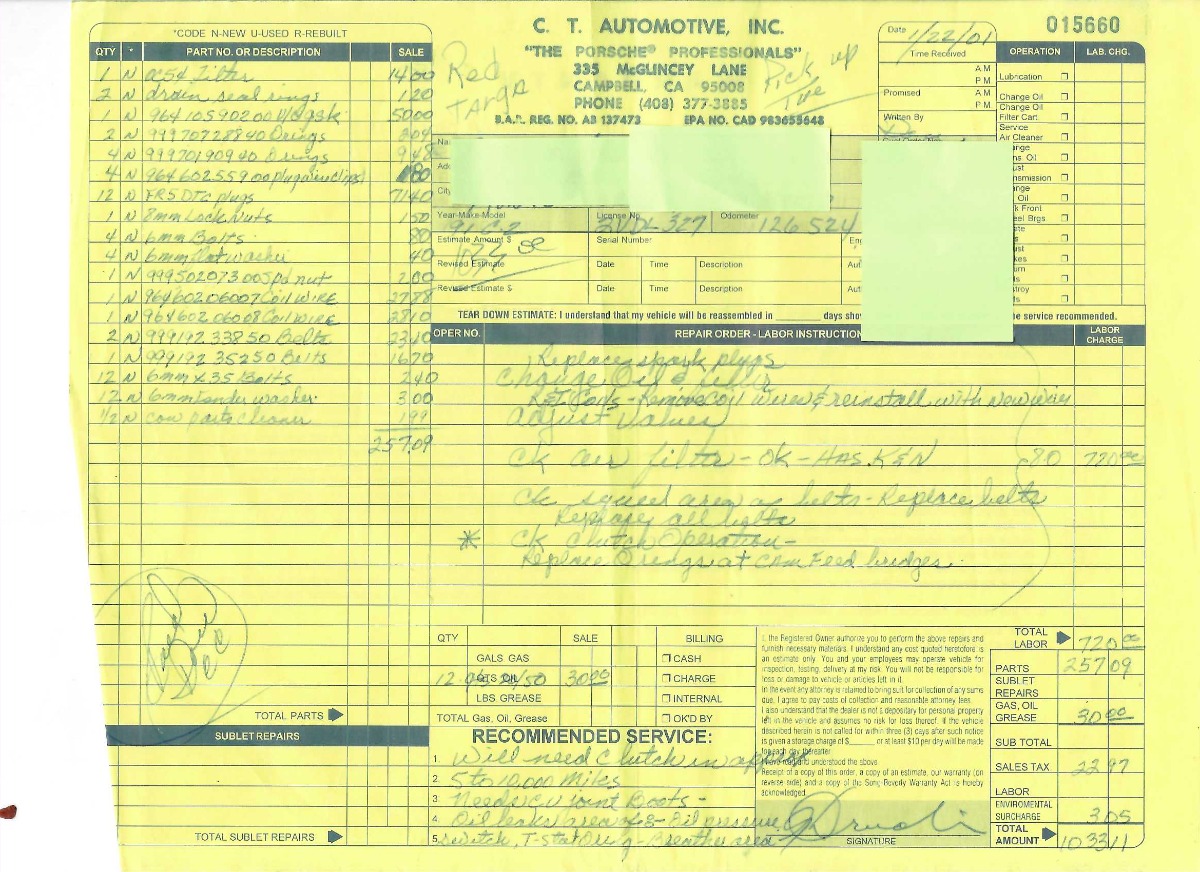 *CODE N-NEW U-USED R-REBUILT
QTY * PART NO. OR DESCRIPTION SALE
1 N oc54 Filter 14 00
2 N drain seal rings 1 20
1 N 964 105 902 00 v/c gsk 50 00
2 N 999 707 288 40 Orings 3 04
4 N 999 701 909 40 Orings 9 48
4 N 964 602 559 00 plug 80
12 N FR5DTC plugs 71 40
1 N 8mm Lock Nuts 1 50
4 N 6mm Bolts 80
4 N 6mm flat washer 40
1 N 999 502 073 00 Spd nut 2 00
1 N 964 602 060 07 Coil WIRE 27 88
1 N 964 602 060 08 Coil WIRE 28 10
2 N 999 192 338 50 Belts 23 10
1 N 999 192 352 50 Belts 16 70
12 N 6mm x 35 Bolts 2 40
12 N 6mm fender washer 3 00
1/2 N can parts cleaner 1 99
257.09
TOTAL PARTS
SUBLET REPAIRS
TOTAL SUBLET REPAIRS
C. T. AUTOMOTIVE, INC.
"THE PORSCHE® PROFESSIONALS"
335 McGLINCEY LANE
CAMPBELL, CA 95008
PHONE (408) 377-3885
B.A.R. REG. NO. AB 137473 EPA NO. CAD 983655648
Red
Targa
Pick up
Tue
Date
1/22/01
Time Received
A M
P M
Promised
A M
P M
Written By
015660
OPERATION LAB. CHG.
Lubrication
Change Oil
Change Oil
Filter Cart.
Service
Air Cleaner
Year-Make-Model License No. Odometer
91 C-2 2VDL327 126524
Estimate Amount $ Serial Number
Revised Estimate Date Time Description
Revised Estimate $ Date Time Description
TEAR DOWN ESTIMATE: I understand that my vehicle will be reassembled in ______ days be service recommended.
OPER NO. REPAIR ORDER - LABOR INSTRUCTION LABOR CHARGE
Replace spark plugs
Change Oil & filter
Remove Coil Wires & reinstall with New Wires
Adjust Valves
ck air filter - OK - HAS K&N 80 720 00
ck squeel area as belts - Replace belts
Replace all belts
* ck Clutch Operation -
Replace Orings at Cam Feed bridges
QTY SALE
GALS GAS
12 QTS OIL 20/50 30 00
LBS GREASE
TOTAL Gas, Oil, Grease
BILLING
CASH
CHARGE
INTERNAL
OK'D BY
RECOMMENDED SERVICE:
1. Will need Clutch in approx
2. 5 to 10,000 Miles
3. Needs C.V joint Boots -
4. Oil leaks area of 8 - Oil pressure
5. switch, T-stat Oring - Breather area
I, the Registered Owner authorize you to perform the above repairs and
furnish necessary materials. I understand any cost quoted heretofore is
an estimate only. You and your employees may operate vehicle for
inspection, testing, delivery at my risk. You will not be responsible for
loss or damage to vehicle or articles left in it.
In the event any attorney is retained to bring suit for collection of any sums
due, I agree to pay costs of collection and reasonable attorney fees.
I also understand that the dealer is not a depositary for personal property
left in the vehicle and assumes no risk for loss thereof. If the vehicle
described herein is not called for within three (3) days after such notice
is given a storage charge of $______ or at least $10 per day will be made
for each day thereafter.
I have read and understood the above.
Receipt of a copy of this order, a copy of an estimate, our warranty (on
reverse side) and a copy of the Song-Beverly Warranty Act is hereby
acknowledged.
SIGNATURE
TOTAL LABOR 720 00
PARTS 257 09
SUBLET REPAIRS
GAS, OIL GREASE 30 00
SUB TOTAL
SALES TAX 22 97
LABOR
ENVIROMENTAL SURCHARGE 3 05
TOTAL AMOUNT 1033 11